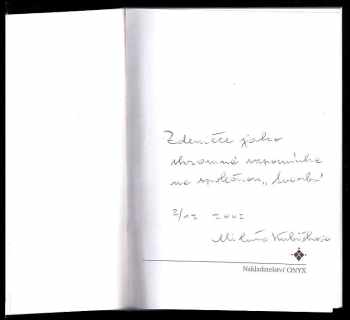 Zdeničce jako
skromná vzpomínka
na společnou „tvorbu"
2/12 2002
Miluše Kubíčková
Nakladatelství ONYX